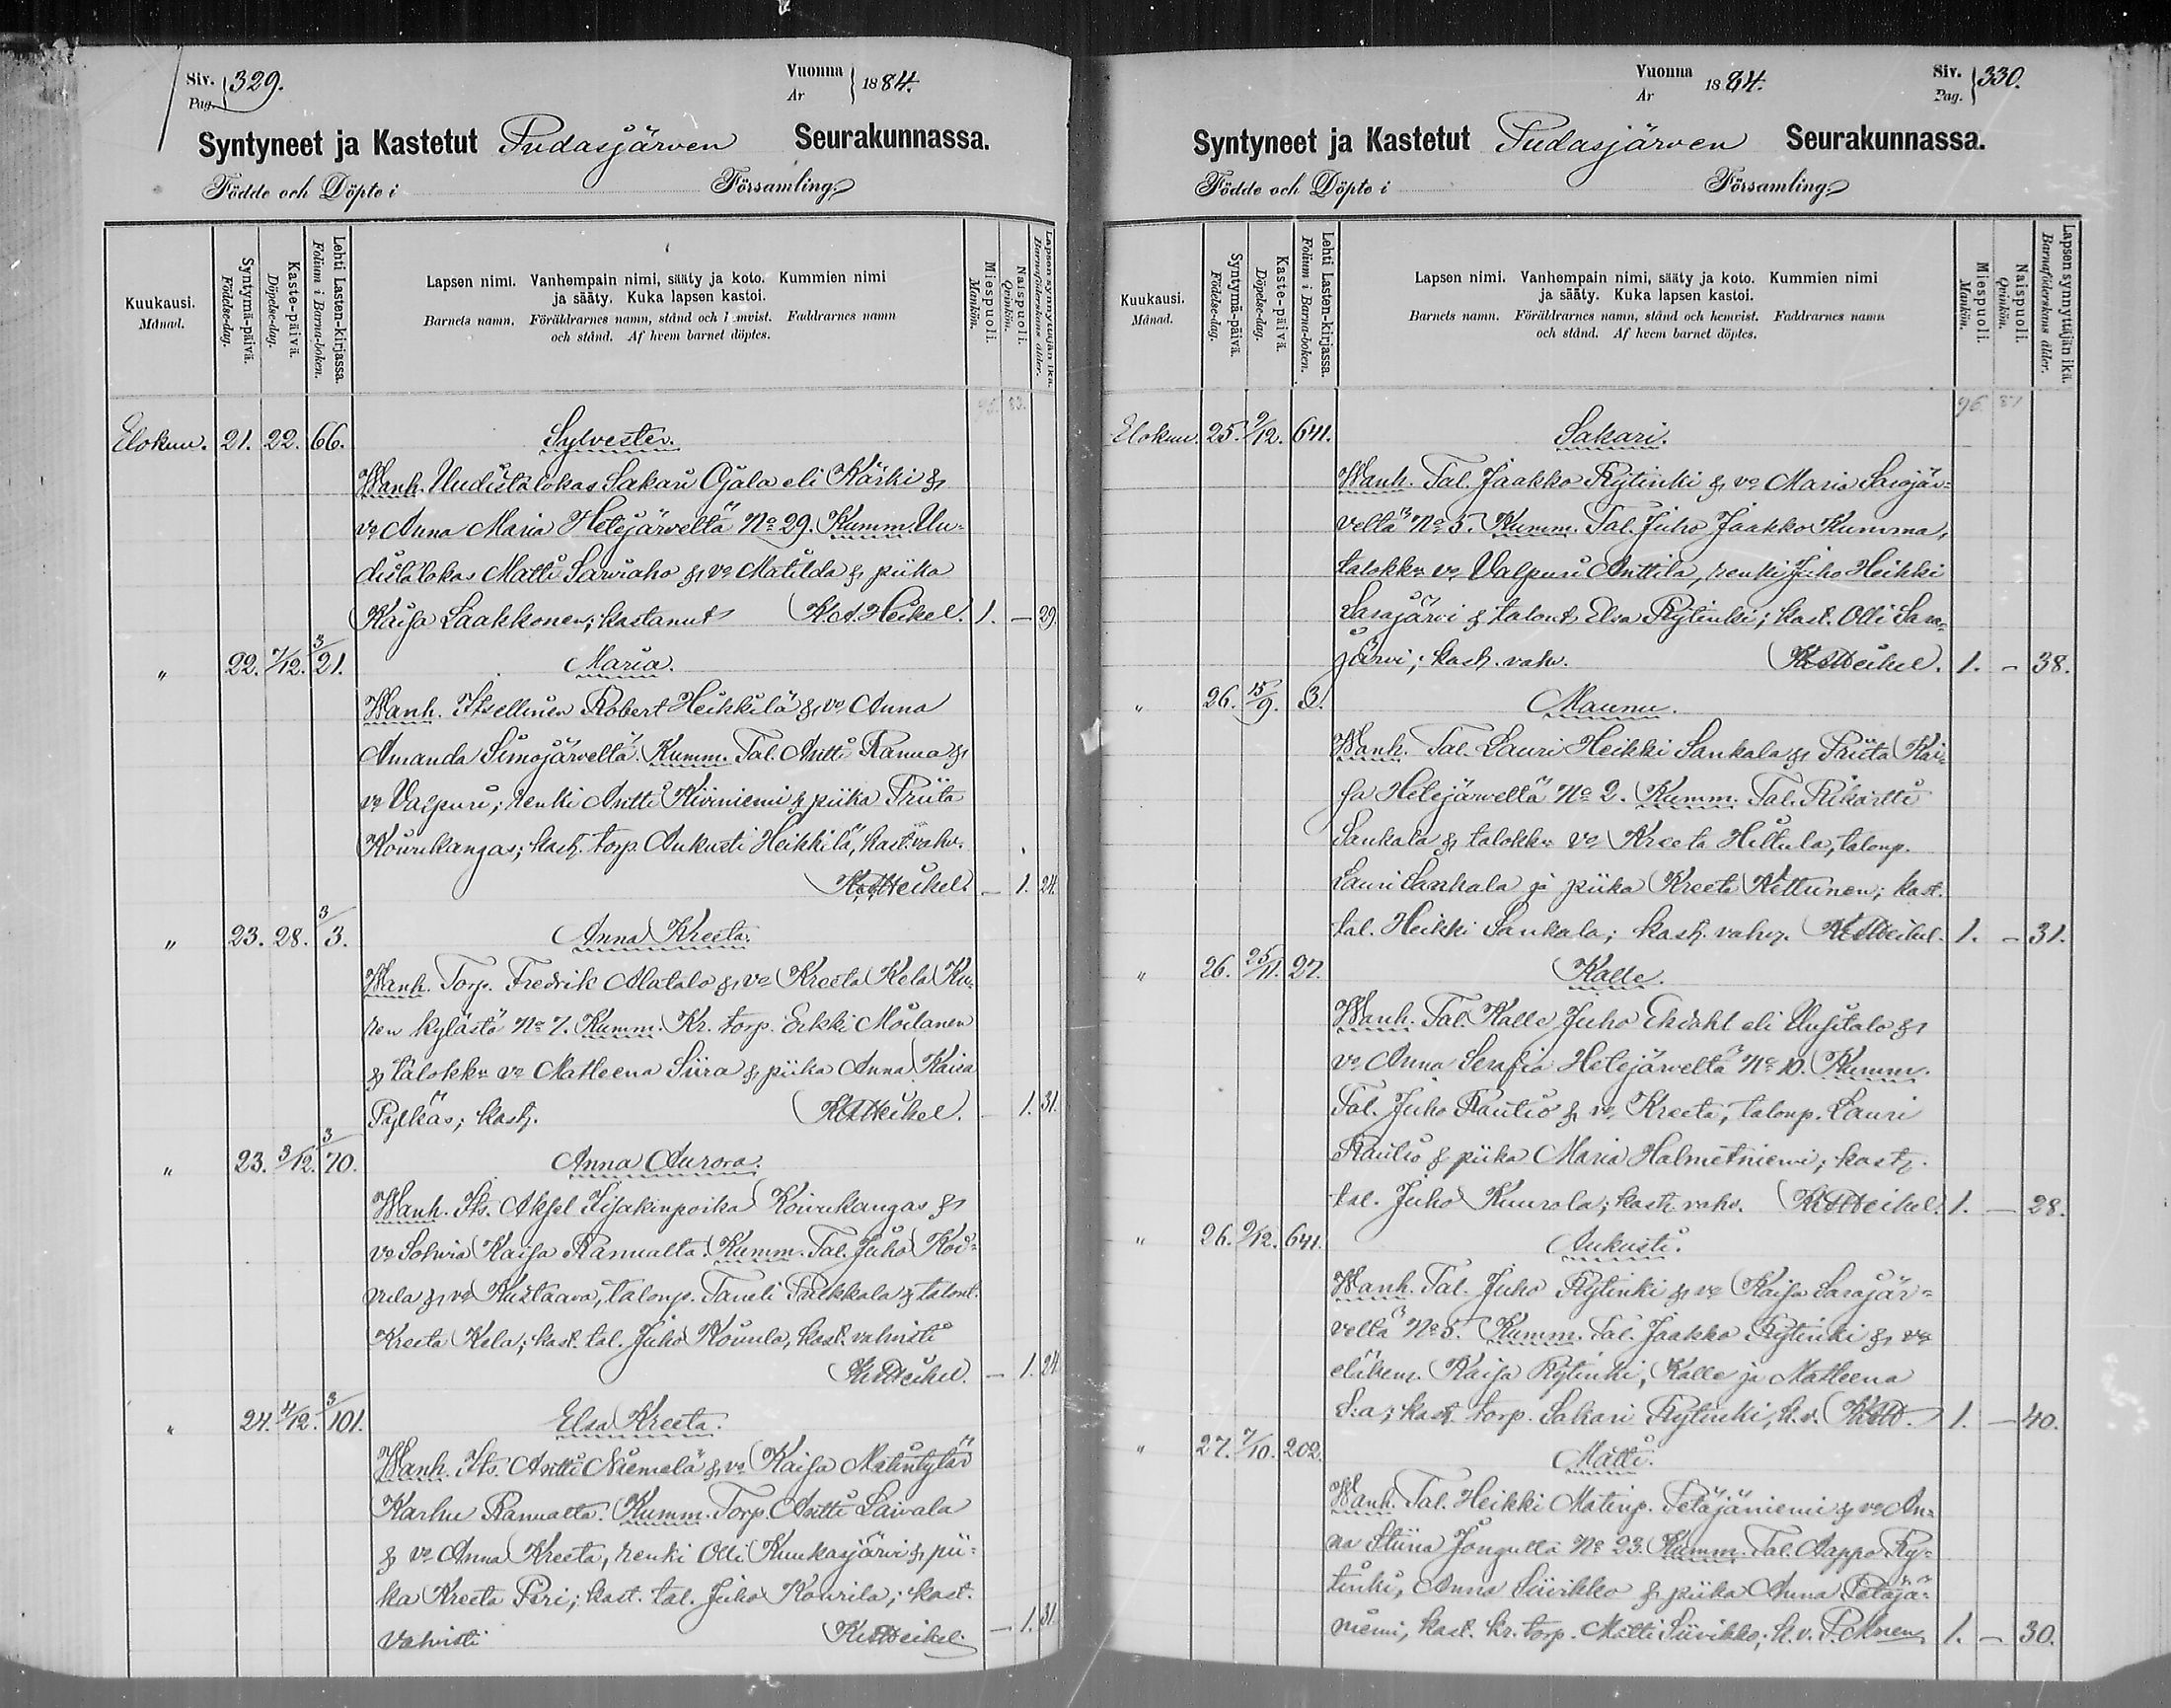 Siv.
Pag. 329.
Vuonna
År 1884.
Syntyneet ja Kastetut Pudasjärven Seurakunnassa.
Födde och Döpte i Församling
Kuukausi.
Månad.
Syntymä-päivä.
Födelse-dag.
Kaste-päivä.
Döpelse-dag.
Lehti Lasten-kirjassa.
Folium i Barna-boken.
Lapsen nimi. Vanhempain nimi, sääty ja koto. Kummien nimi
ja sääty. Kuka lapsen kastoi.
Barnets namn. Föräldrarnes namn, stånd och hemvist. Faddrarnes namn
och stånd. Af hvem barnet döptes.
Miespuoli.
Mankön.
Naispuoli.
Qvinkön.
Lapsen synnyttäjän ikä.
Barnaföderskans ålder.
Elokuu. 21. 22. 66. Sylvester.
Wanh. Uudistalokas Sakari Ojala eli Kärki &
vo Anna Maria Hetejärveltä No 29. Kumm. Uu-
distalokas Matti Sarviaho & vo Matilda & piika
Kaisa Laakkonen; kastanut K. A. Heikel. 1. — 29.
" 22. 7/12. 3/21. Maria.
Wanh. Itsellinen Robert Heikkilä & vo Anna
Amanda Simojärveltä. Kumm. Tal. Antti Ranua &
vo Valpuri; renki Antti Kiviniemi & piika Priita
Kourikangas; kast. torp. Aukusti Heikkilä, kast. vahv.
K. A. Heikel. — 1. 24.
" 23. 28. 3/3. Anna Kreeta.
Wanh. Torp. Fredrik Alatalo & vo Kreeta Kela Ku-
ren kylästä No 7. Kumm. Kr. torp. Erkki Moilanen
& talokkn vo Matleena Siira & piika Anna Kaisa
Pylkäs; kast. K. A. Heikel. 1. 31.
" 23. 3/12. 3/70. Anna Aurora.
Wanh. Its. Aksel Iisakinpoika Koivukangas &
vo Kaisa Ranualta. Kumm. Tal. Juho Kou-
rila & vo Kustaava, talonp. Taneli Pirkkala & talont.
Kreeta Kela; kast. tal. Juho Kourila, kast. vahvisti
K. A. Heikel. — 1. 24
" 24. 4/12. 3/101. Elsa Kreeta.
Wanh. Its. Antti Niemelä & vo Kaisa Matintytär
Karhu Ranualta. Kumm. Torp. Antti Laivala
& vo Anna Kreeta, renki Olli Kuukasjärvi & pii-
ka Kreeta Peri; kast. tal. Juho Kourila; kast.
vahvisti K. A. Heikel. — 1. 31.
Vuonna
År 1884.
Siv.
Pag. 330.
Syntyneet ja Kastetut Pudasjärven Seurakunnassa.
Födde och Döpte i Församling
Kuukausi.
Månad.
Syntymä-päivä.
Födelse-dag.
Kaste-päivä.
Döpelse-dag.
Lehti Lasten-kirjassa.
Folium i Barna-boken.
Lapsen nimi. Vanhempain nimi, sääty ja koto. Kummien nimi
ja sääty. Kuka lapsen kastoi.
Barnets namn. Föräldrarnes namn, stånd och hemvist. Faddrarnes namn
och stånd. Af hvem barnet döptes.
Miespuoli.
Mankön.
Naispuoli.
Qvinkön.
Lapsen synnyttäjän ikä.
Barnaföderskans ålder.
Elokuu. 25. 9/12. 641. Sakari.
Wanh. Tal. Jaakko Rytinki & vo Maria Sarajär-
veltä No 5. Kumm. Tal. Juho Jaakko Kumma,
talokkn vo Valpuri Anttila, renki Juho Heikki
Sarajärvi & talont. Elsa Rytinki; kast. Olli Sara-
järvi; kast. vahv. K. A. Heikel. 1. — 38.
" 26. 15/9. 3. Maunu.
Wanh. Tal. Lauri Heikki Sankala & Priita Kai-
sa Hetejärveltä No 2. Kumm. Tal. Rikartti
Sankala & talokkn vo Kreeta Hiltula, talonp.
Lauri Sankala ja piika Kreeta Kettunen; kast.
tal. Heikki Sankala; kast. vahv. K. A. Heikel. 1. — 31.
" 26. 25/11. 27. Kalle.
Wanh. Tal. Kalle Juho Ekdahl eli Uusitalo &
vo Anna Serafia Hetejärveltä No 10. Kumm.
Tal. Juho Rautio & vo Kreeta, talonp. Lauri
Rautio & piika Maria Halmetniemi; kast.
tal. Juho Kuurola; kast. vahv. K. A. Heikel. 1. — 28.
" 26. 9/12. 641. Aukusti.
Wanh. Tal. Juho Rytinki & vo Kaisa Sarajär-
veltä No 5. Kumm. Tal. Jaakko Rytinki & vo
Kaisa Rytinki, Kalle ja Matleena
S:a; kast. torp. Sakari Rytinki, k. v. K. A. H. 1. — 40.
" 27. 7/10. 202. Matti.
Wanh. Tal. Heikki Matinp. Petäjäniemi & vo An-
na Stiina Jongulla No 23. Kumm. Tal. Aappo Ry-
tinki, Anna Siivikko & piika Anna Petäjä-
niemi, kast. kr. torp. Matti Siivikko; k. v. 1. — 30.